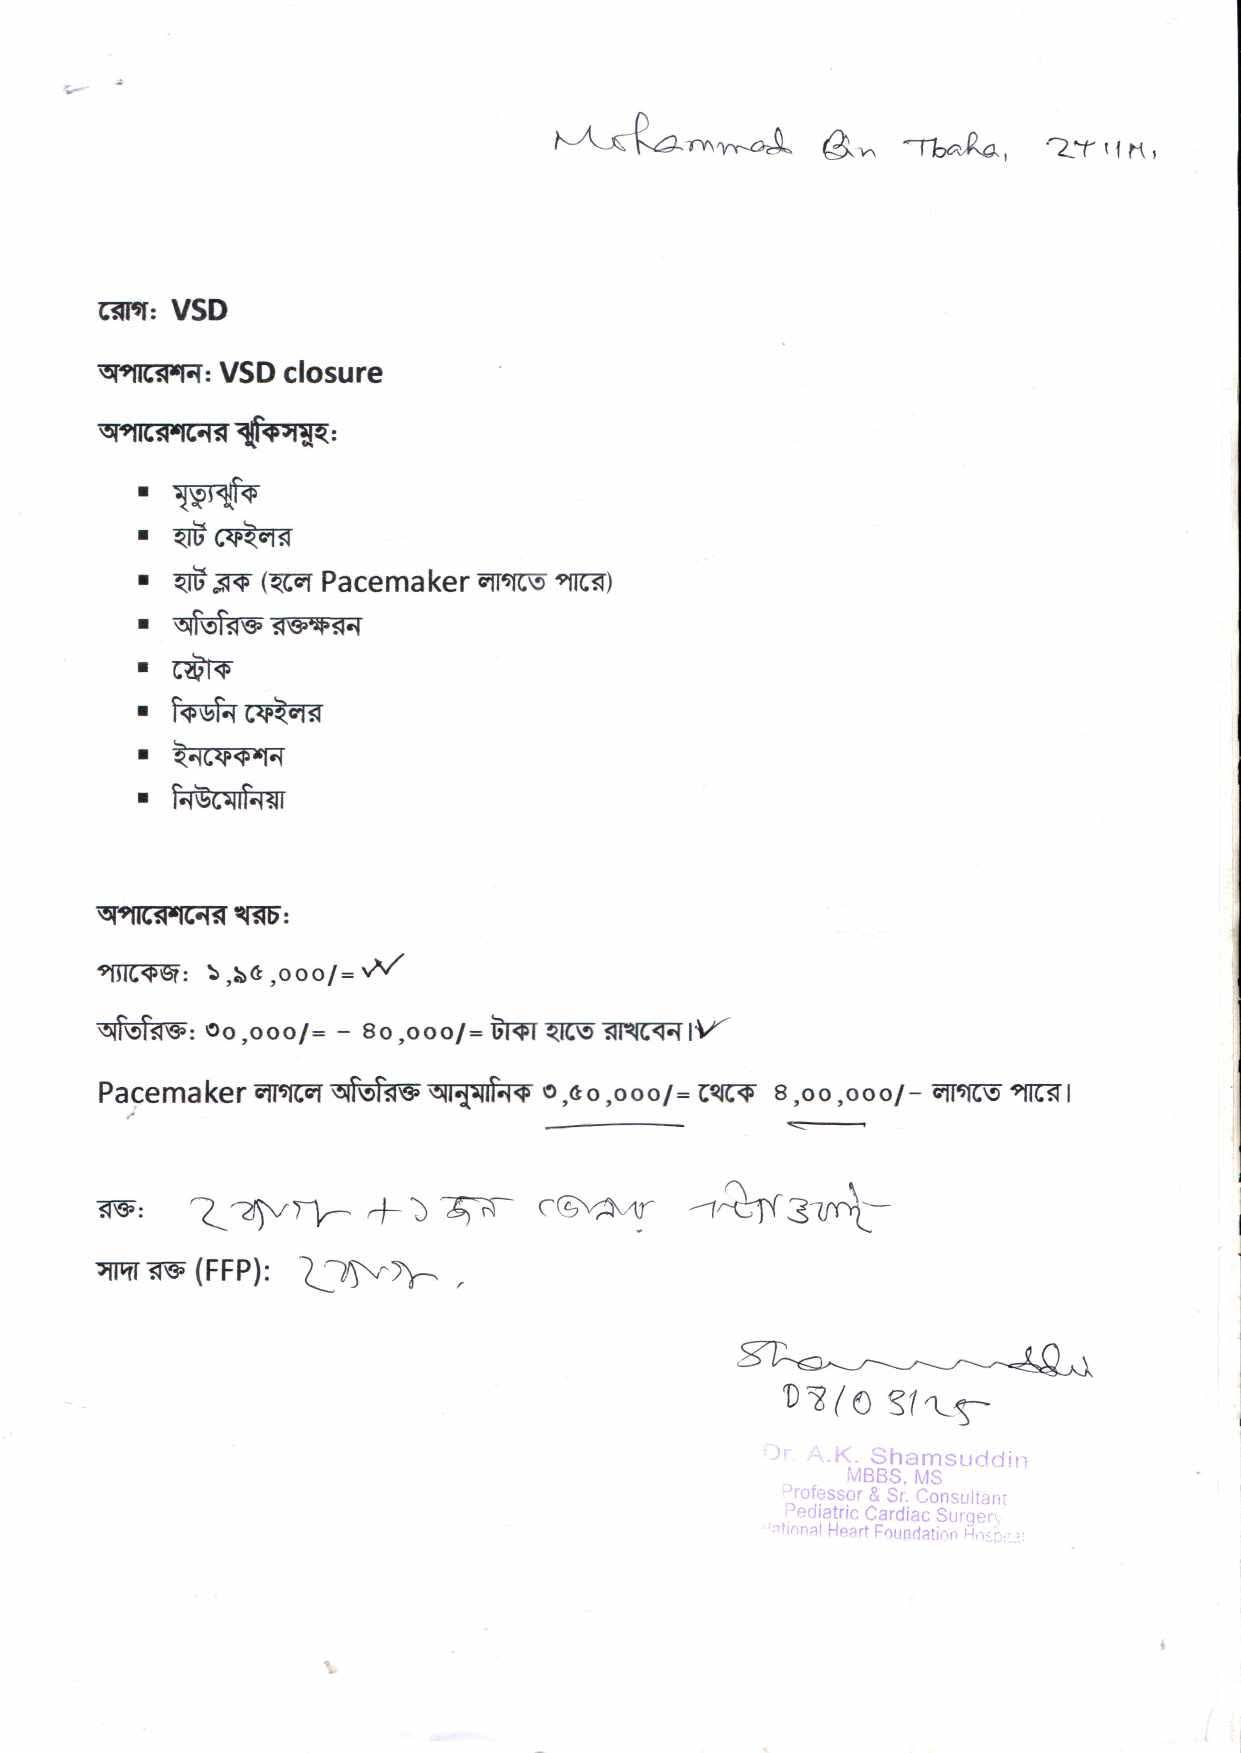 Mohammad Bin Tbaha, 2Y 11M,
রোগ: VSD
অপারেশন: VSD closure
অপারেশনের ঝুকিসমূহ:
▪ মৃত্যুঝুকি
▪ হার্ট ফেইলর
▪ হার্ট ব্লক (হলে Pacemaker লাগতে পারে)
▪ অতিরিক্ত রক্তক্ষরন
▪ স্ট্রোক
▪ কিডনি ফেইলর
▪ ইনফেকশন
▪ নিউমোনিয়া
অপারেশনের খরচ:
প্যাকেজ: ১,৯৫,০০০/=
অতিরিক্ত: ৩০,০০০/= – ৪০,০০০/= টাকা হাতে রাখবেন।
Pacemaker লাগলে অতিরিক্ত আনুমানিক ৩,৫০,০০০/= থেকে ৪,০০,০০০/– লাগতে পারে।
রক্ত: ২ ব্যাগ + ১ জন ডোনার
সাদা রক্ত (FFP): ২ ব্যাগ
Shamsuddin
08/03/25
Dr. A.K. Shamsuddin
MBBS, MS
Professor & Sr. Consultant
Pediatric Cardiac Surgery
National Heart Foundation Hospital